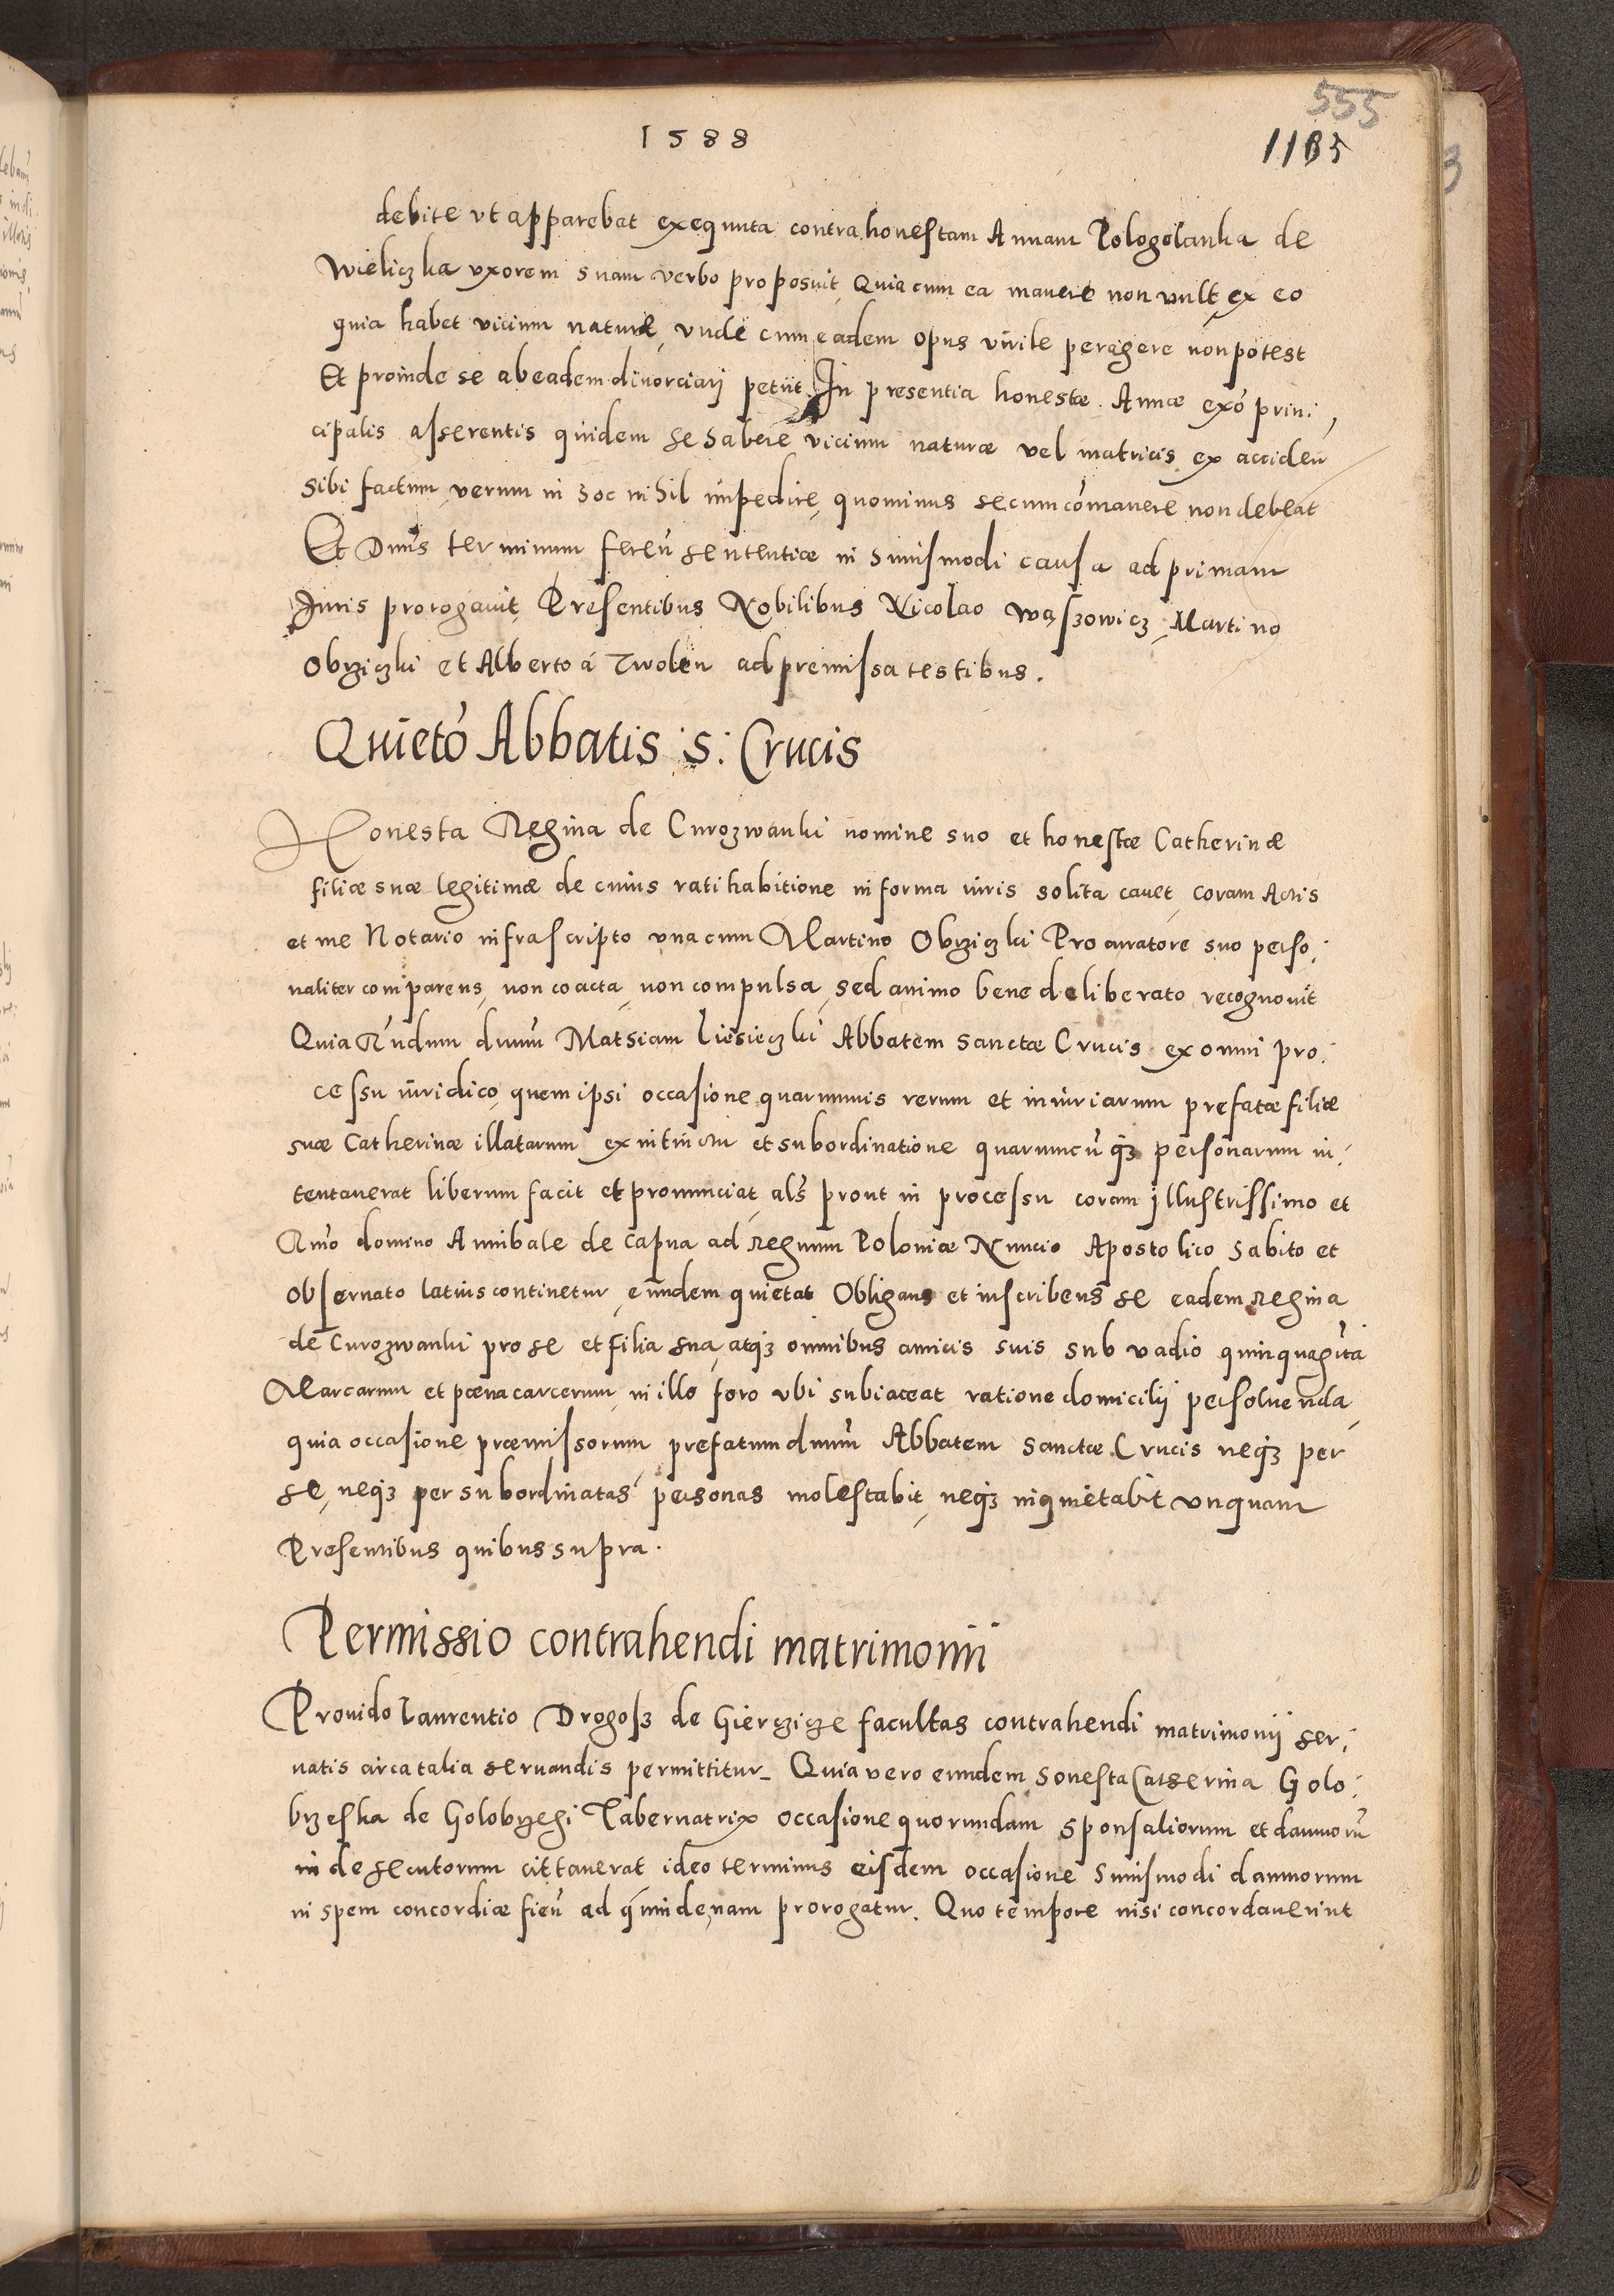 555
1588
1185
debite vt apparebat exequuta contra honestam Annam Pologolanka de
Wieliczka vxorem suam verbo proposuit, Quia cum ea manere non vult ex eo
quia habet vicium naturæ, vnde cum eadem opus virile peragere non potest
Et proinde se ab eadem divorciarj petiit. In presentia honestæ Annæ ex 
cipalis asserentis quidem se habere vicium naturæ vel matricis ex acciden
sibi factum, verum in hoc nihil impedire, quominus secum cōmanere non debeat
Et Dnus terminum sententiæ in huiusmodi causa ad primam
Juris prorogavit, Presentibus Nobilibus Nicolao Wąszowicz, Martino
Obrziczki et Alberto á Zwolen ad premissa testibus.
Quietó Abbatis S: Crucis
Honesta Regina de Curozwanki nomine suo et honestæ Catherinæ
filiæ suæ legitimæ de cuius ratihabitione in forma iuris solita cauet, coram Actis
et me Notario infrascripto vna cum Martino Obrziczki Procuratore suo perso,
naliter comparens, non coacta, non compulsa, sed animo bene deliberato recognouit
Quia Rñdum dnum Mathiam Liesieczki Abbatem Sanctæ Crucis ex omni pro,
cessu iuridico, quem ipsi occasione quarumuis rerum et iniuriarum prefatæ filiæ
suæ Catherinæ illatarum ex et subordinatione quarumcūq3 personarum in,
tentauerat liberum facit et pronunciat, als prout in processu coram illustrissimo et
Rmo domino Annibale de Capua ad Regnum Poloniæ Nuncio Apostolico habito et
obseruato latius continetur, eundem quietat Obligans et inscribens se eadem Regina
de Curozwanki pro se et filia sua, atq3 omnibus amicis suis sub vadio quinquagīta
Marcarum et pœna carcerum, in illo foro vbi subiaceat ratione domicilij persoluenda,
quia occasione præmissorum prefatum dnum Abbatem Sanctæ Crucis neq3 per
se, neq3 per subordinatas personas molestabit, neq3 inquietabit vnquam
Presentibus quibus supra.
Permissio contrahendi matrimonii
Prouido Laurentio Drogosz de Gierczicze facultas contrahendi matrimonij ser,
uatis circa talia seruandis permittitur_ Quia vero eundem honesta Catherina Golo,
brzeska de Golobrzegi Tabernatrix occasione quorundam sponsaliorum et damnorū
inde secutorum cittauerat ideo terminus eisdem occasione huiusmodi damnorum
in spem concordiæ ad quindenam prorogatur. Quo tempore nisi concordauerint